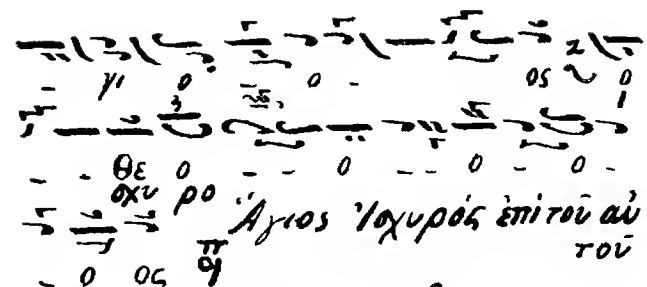 - γι ο - ο - ος ο
- - θε ο - - ο - - ο - ο -
σχυ ρο
Ἅγιος Ἰσχυρός ἐπί τοῦ αὐ
τοῦ
- ο ος